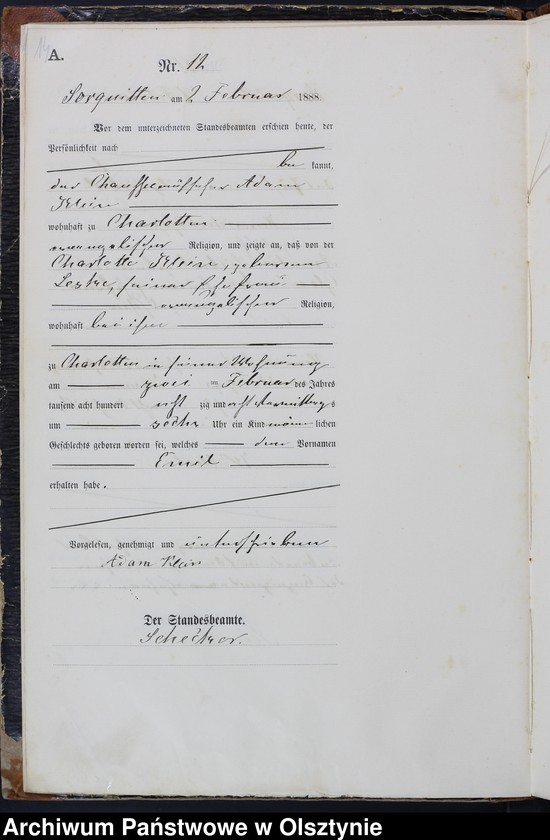 A.
Nr. 12
Sorquitten am 2 Februar 1888.
Vor dem unterzeichneten Standesbeamten erschien heute, der
Persönlichkeit nach
be kannt,
der Chausseeaufseher Adam
Klein
wohnhaft zu Charlotten
evangelischer Religion, und zeigte an, daß von der
Charlotte Klein, geborenen
seiner Ehefrau
evangelischen Religion,
wohnhaft bei ihm
zu Charlotten in seiner Wohnung
am zwei ten Februar des Jahres
tausend acht hundert acht zig und acht Vormittags
um sechs Uhr ein Kind männ lichen
Geschlechts geboren worden sei, welches den Vornamen
Emil
erhalten habe.
Vorgelesen, genehmigt und unterschrieben
Adam Klein
Der Standesbeamte.
Archiwum Państwowe w Olsztynie